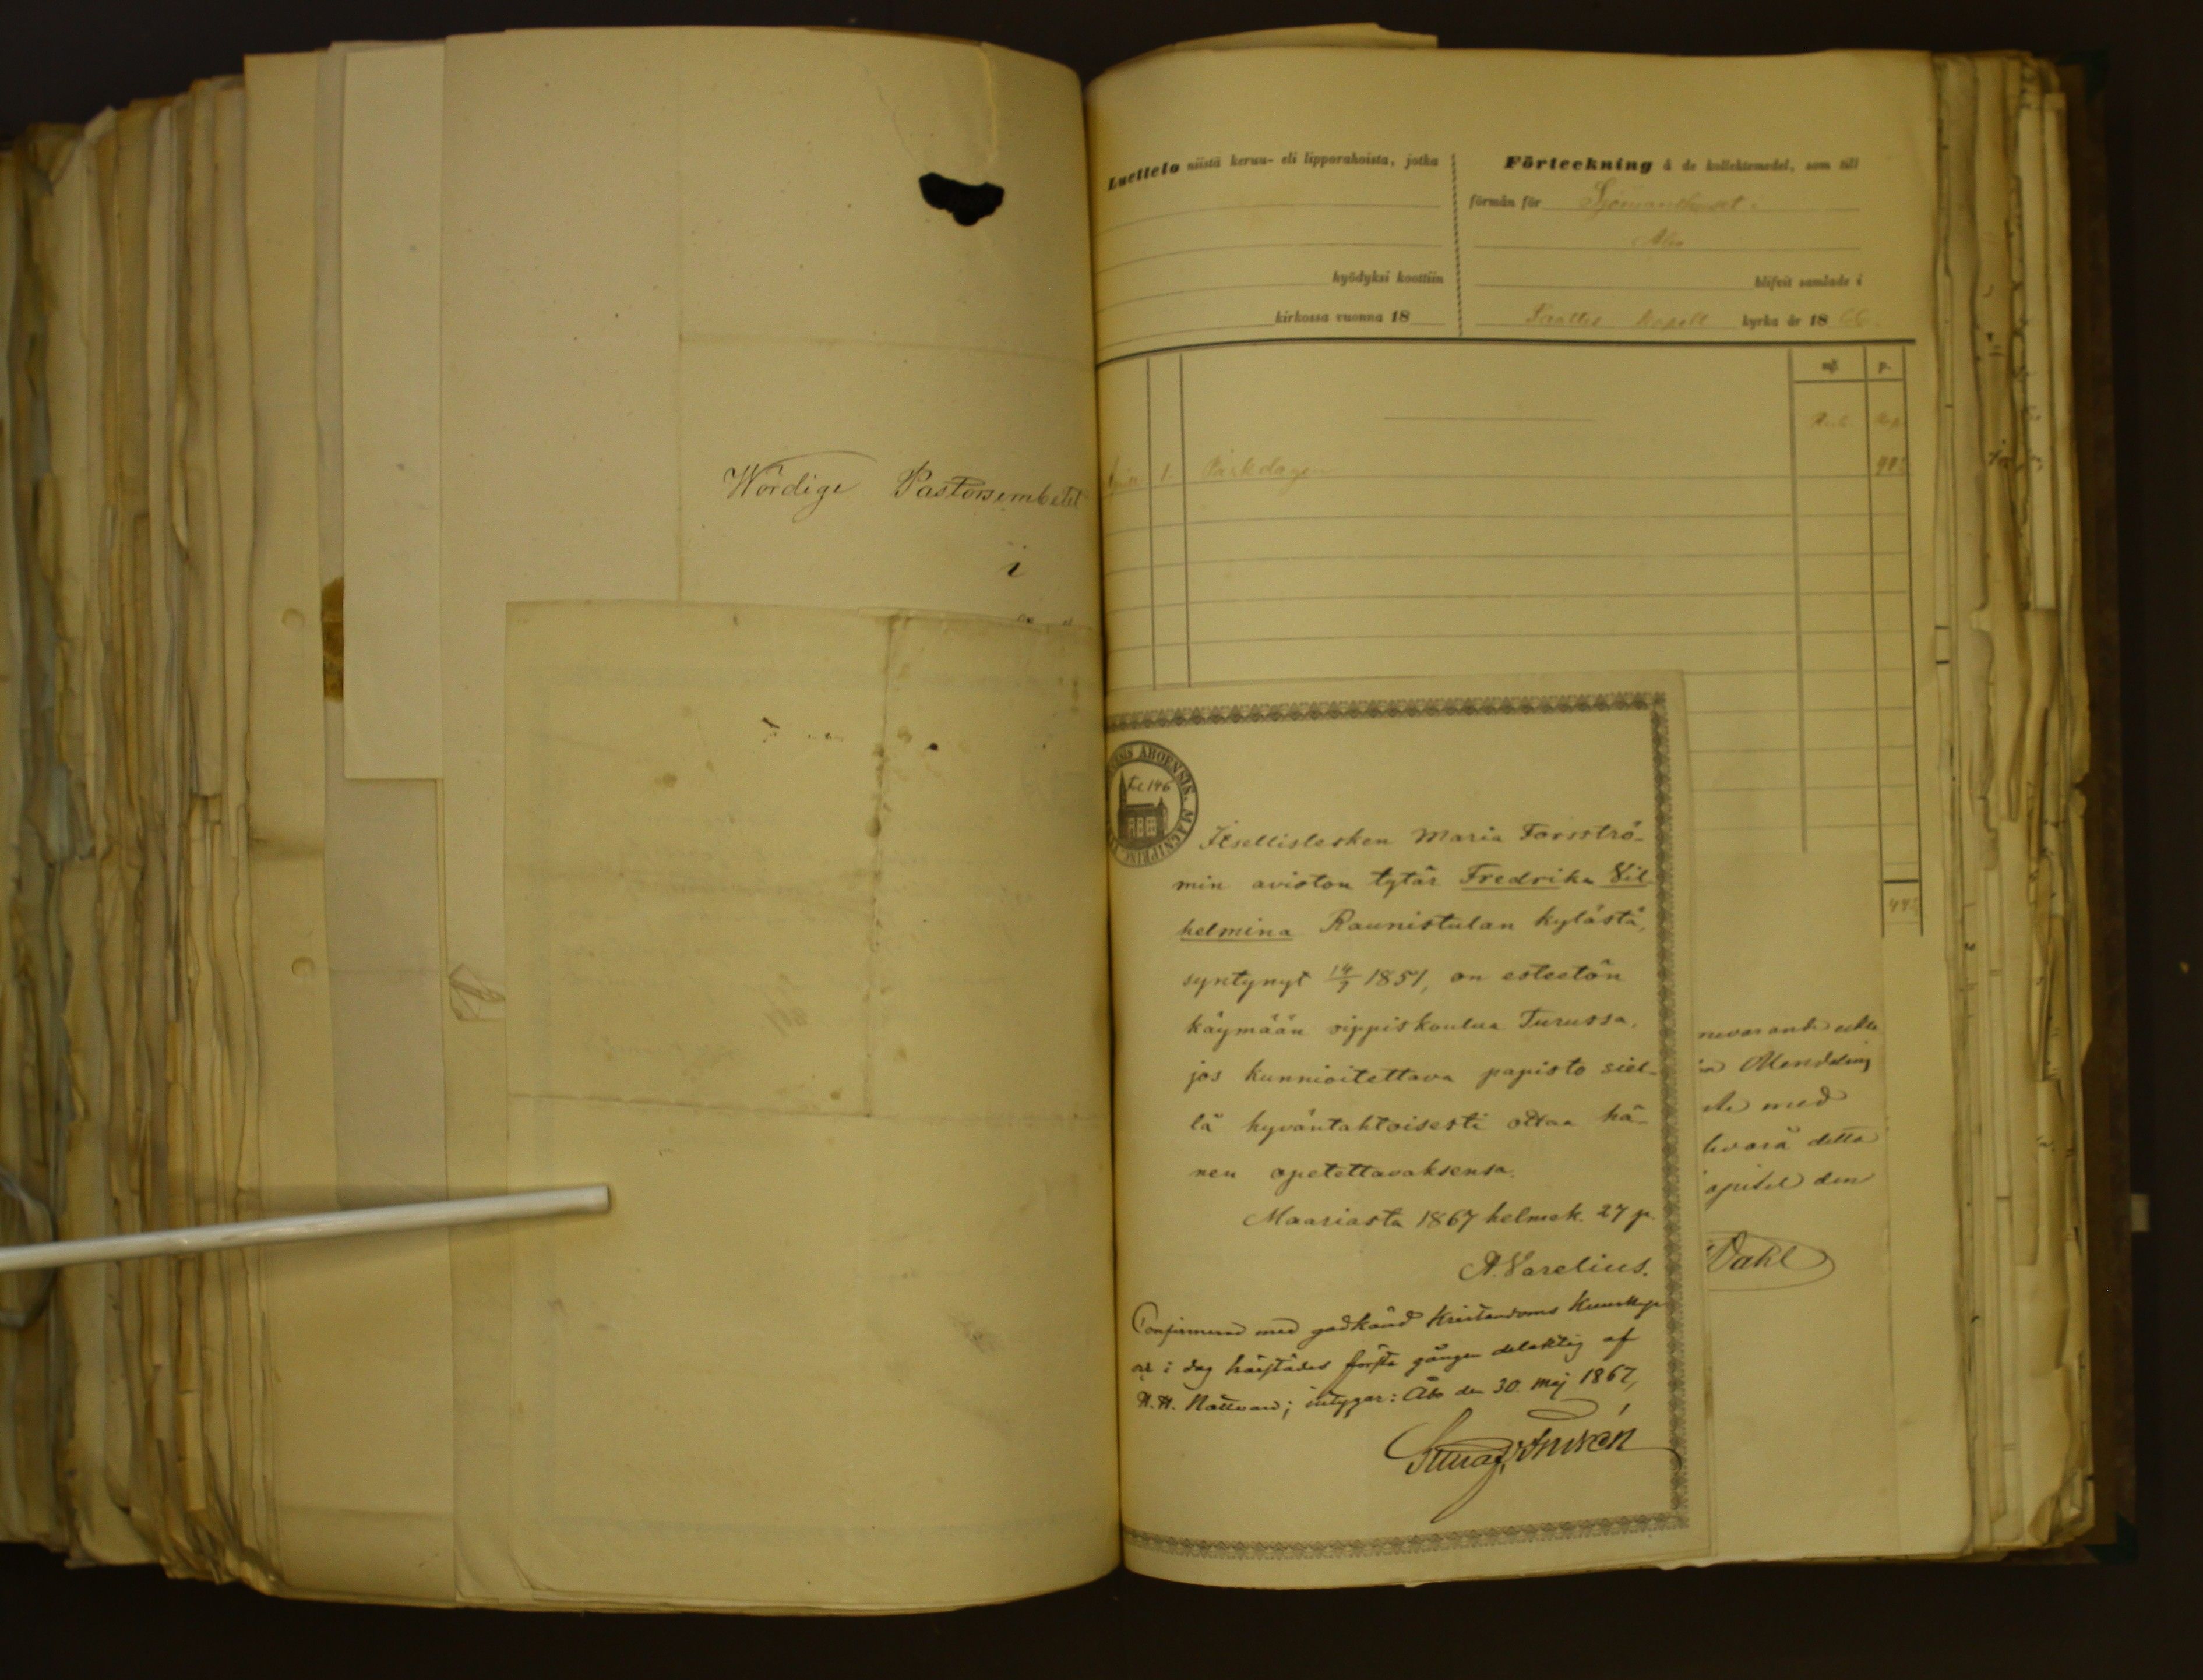 Wördige Pastorsembetet
i
Luettelo niistä keruu- eli lipporahoista, jotka
hyödyksi koottiin
kirkossa vuonna 18
Förteckning å de kollektemedel, som till
förmån för Sjömanshuset i
Åbo
blifvit samlade i
Sanctes kapell kyrka år 1866.
mf. p.
Rub. Kop.
April 1. Påskdagen
ABOENSIS. MAGNI PRINC
fol. 146
Itsellislesken Maria Forsströ-
min avioton tytär Fredrika Vil
helmina Raunistulan kylästä,
syntynyt 14/9 1851, on esteetön
käymään rippiskoulua Turussa,
jos kunnioitettava papisto siel-
lä hyväntahtoisesti ottaa hä-
nen opetettavaksensa.
Maariasta 1867 helmek. 27 p.
A. Varelius.
Confirmerad med godkänd Kristendoms Kunskap
och i dag härstädes första gången delaktig af
H. H. Nattvard; intygar: Åbo den 30. Maj 1867,
Mendeling
med
hvarå detta
den
Dahl